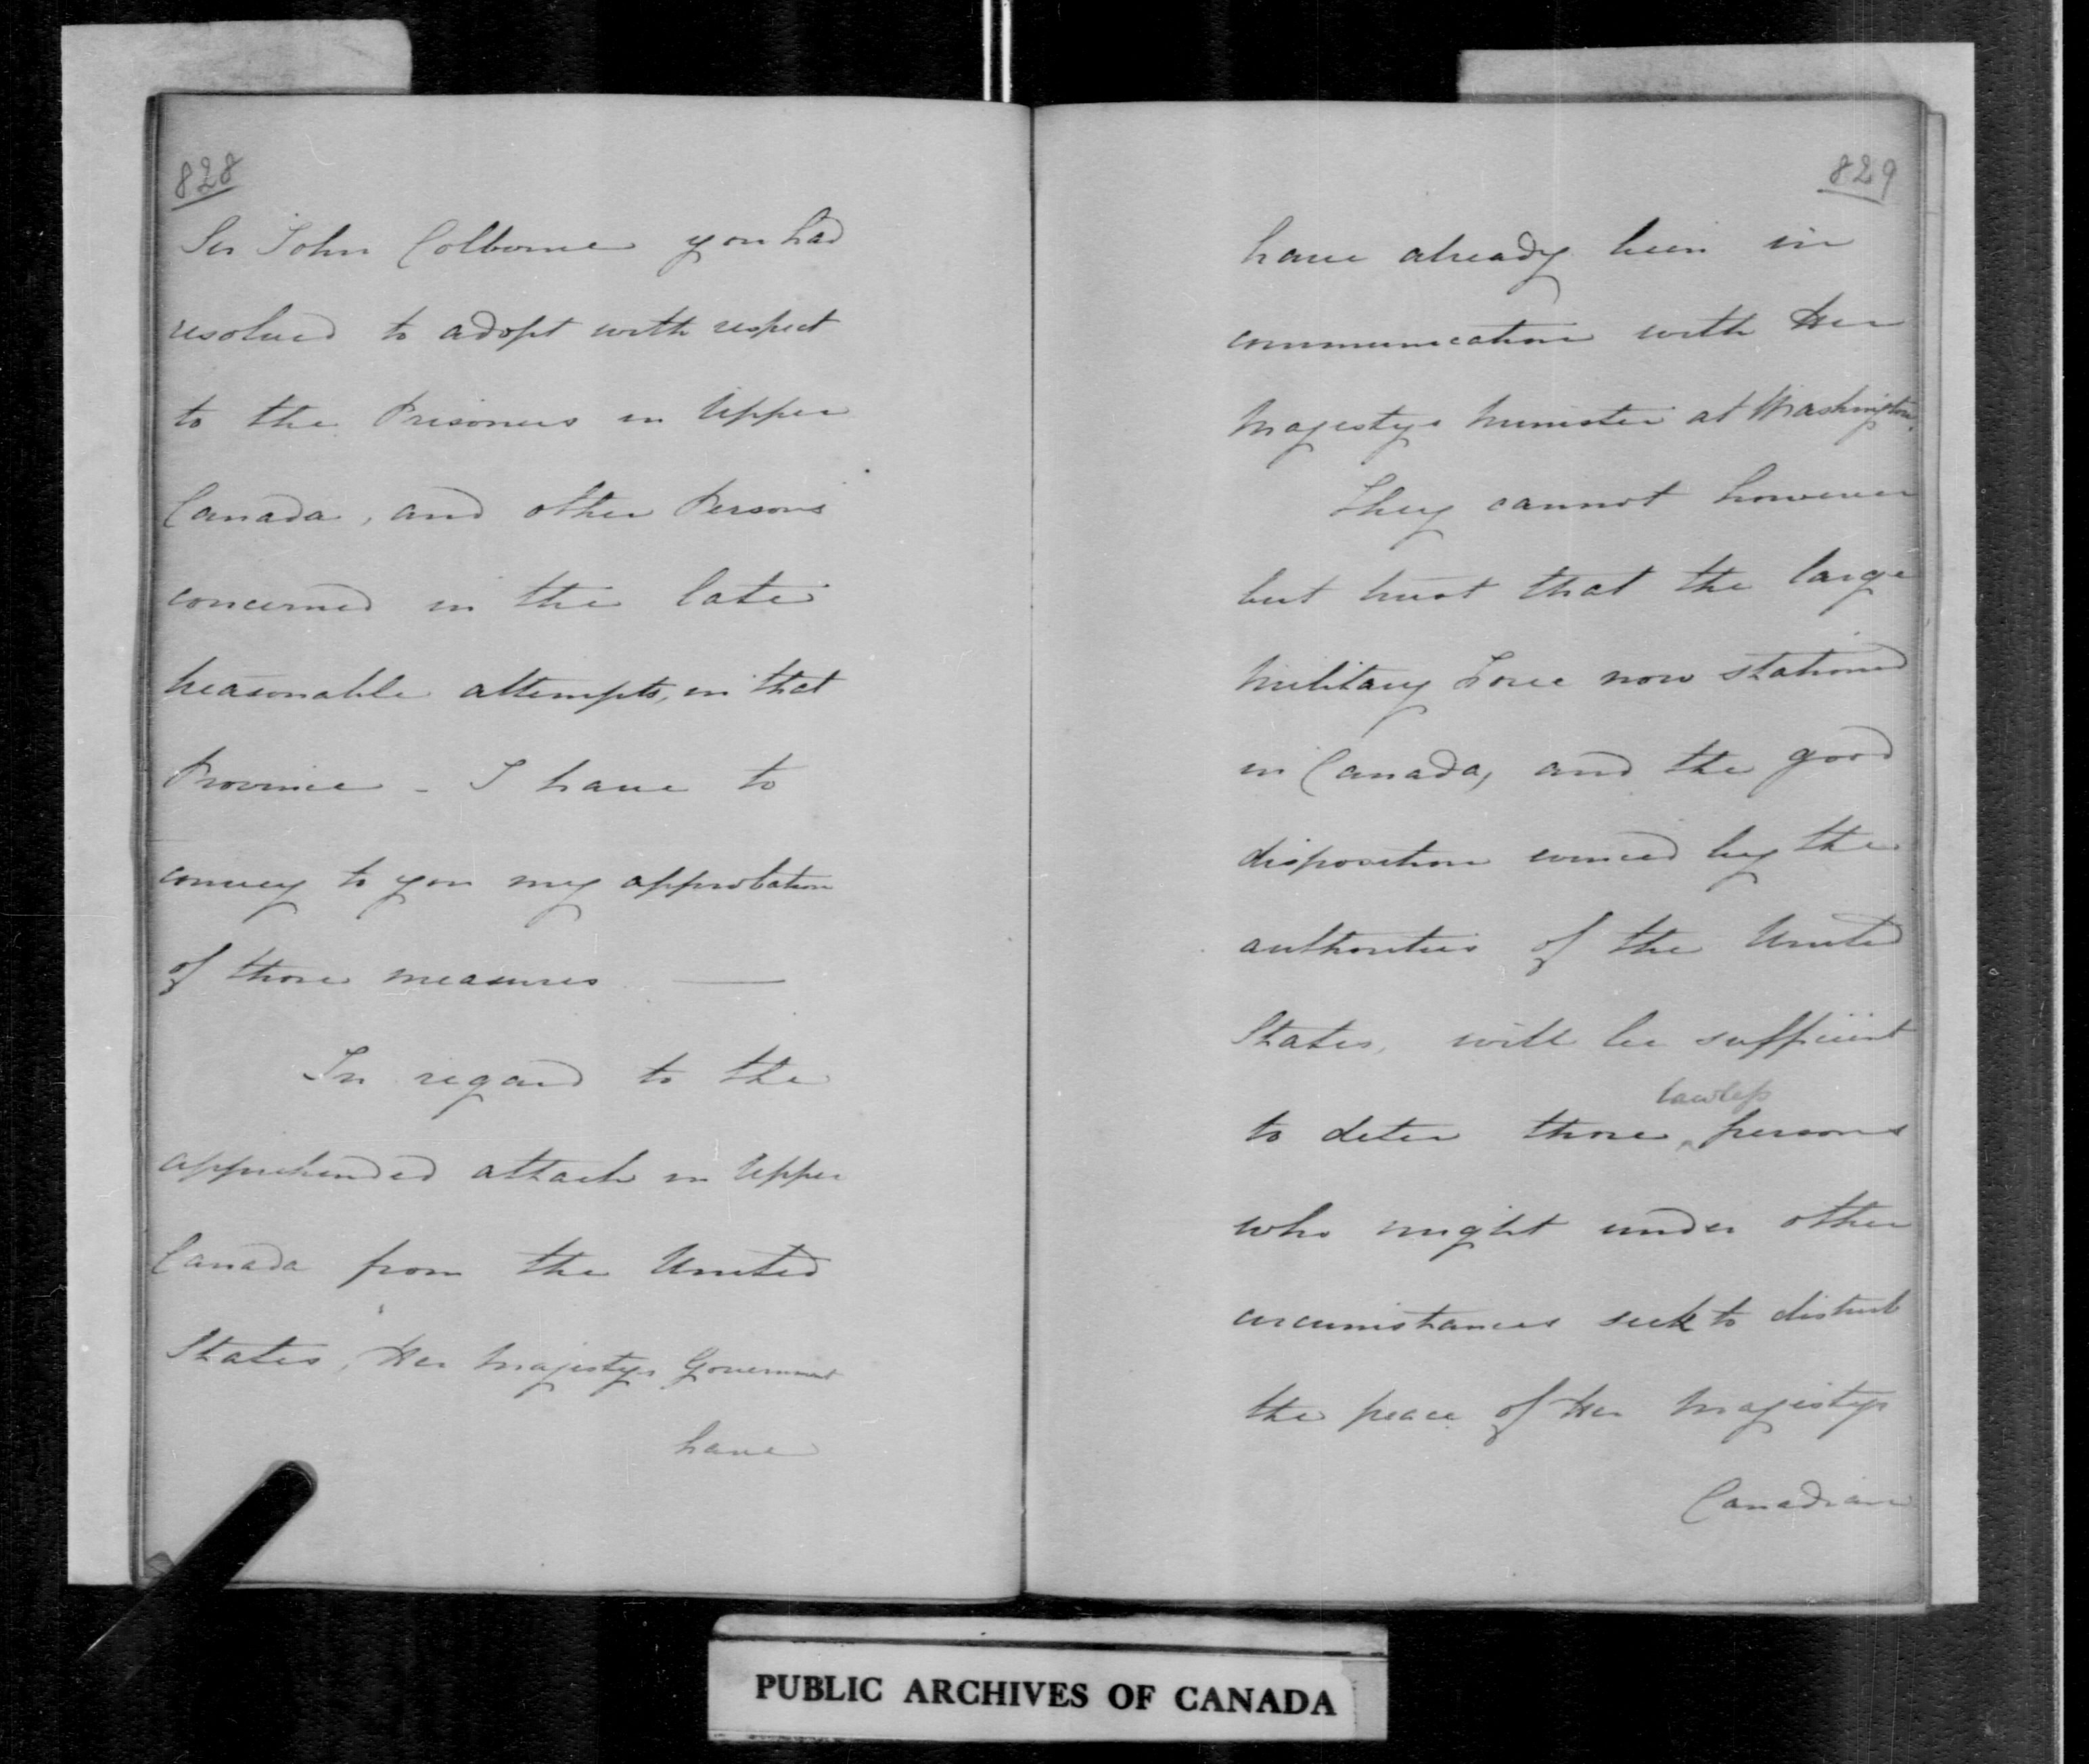 828
Sir John Colborne you had
resolved to adopt with respect
to the Prisoners in Upper
Canada, and other Persons
concerned in the late
treasonable attempts, in that
Province - I have to
convey to you my approbation
of those measures —
In regard to the
apprehended attack in Upper
Canada from the United
States, Her Majestys Government
have
829
have already been in
communication with Her
Majestys Minister at Washington.
They cannot however
but trust that the large
Military Force now stationed
in Canada, and the good
disposition evinced by the
authorities of the United
States, will be sufficient
lawless
to deter those ^ persons
who might under other
circumstances seek to disturb
the peace of Her Majestys
Canadian
PUBLIC ARCHIVES OF CANADA